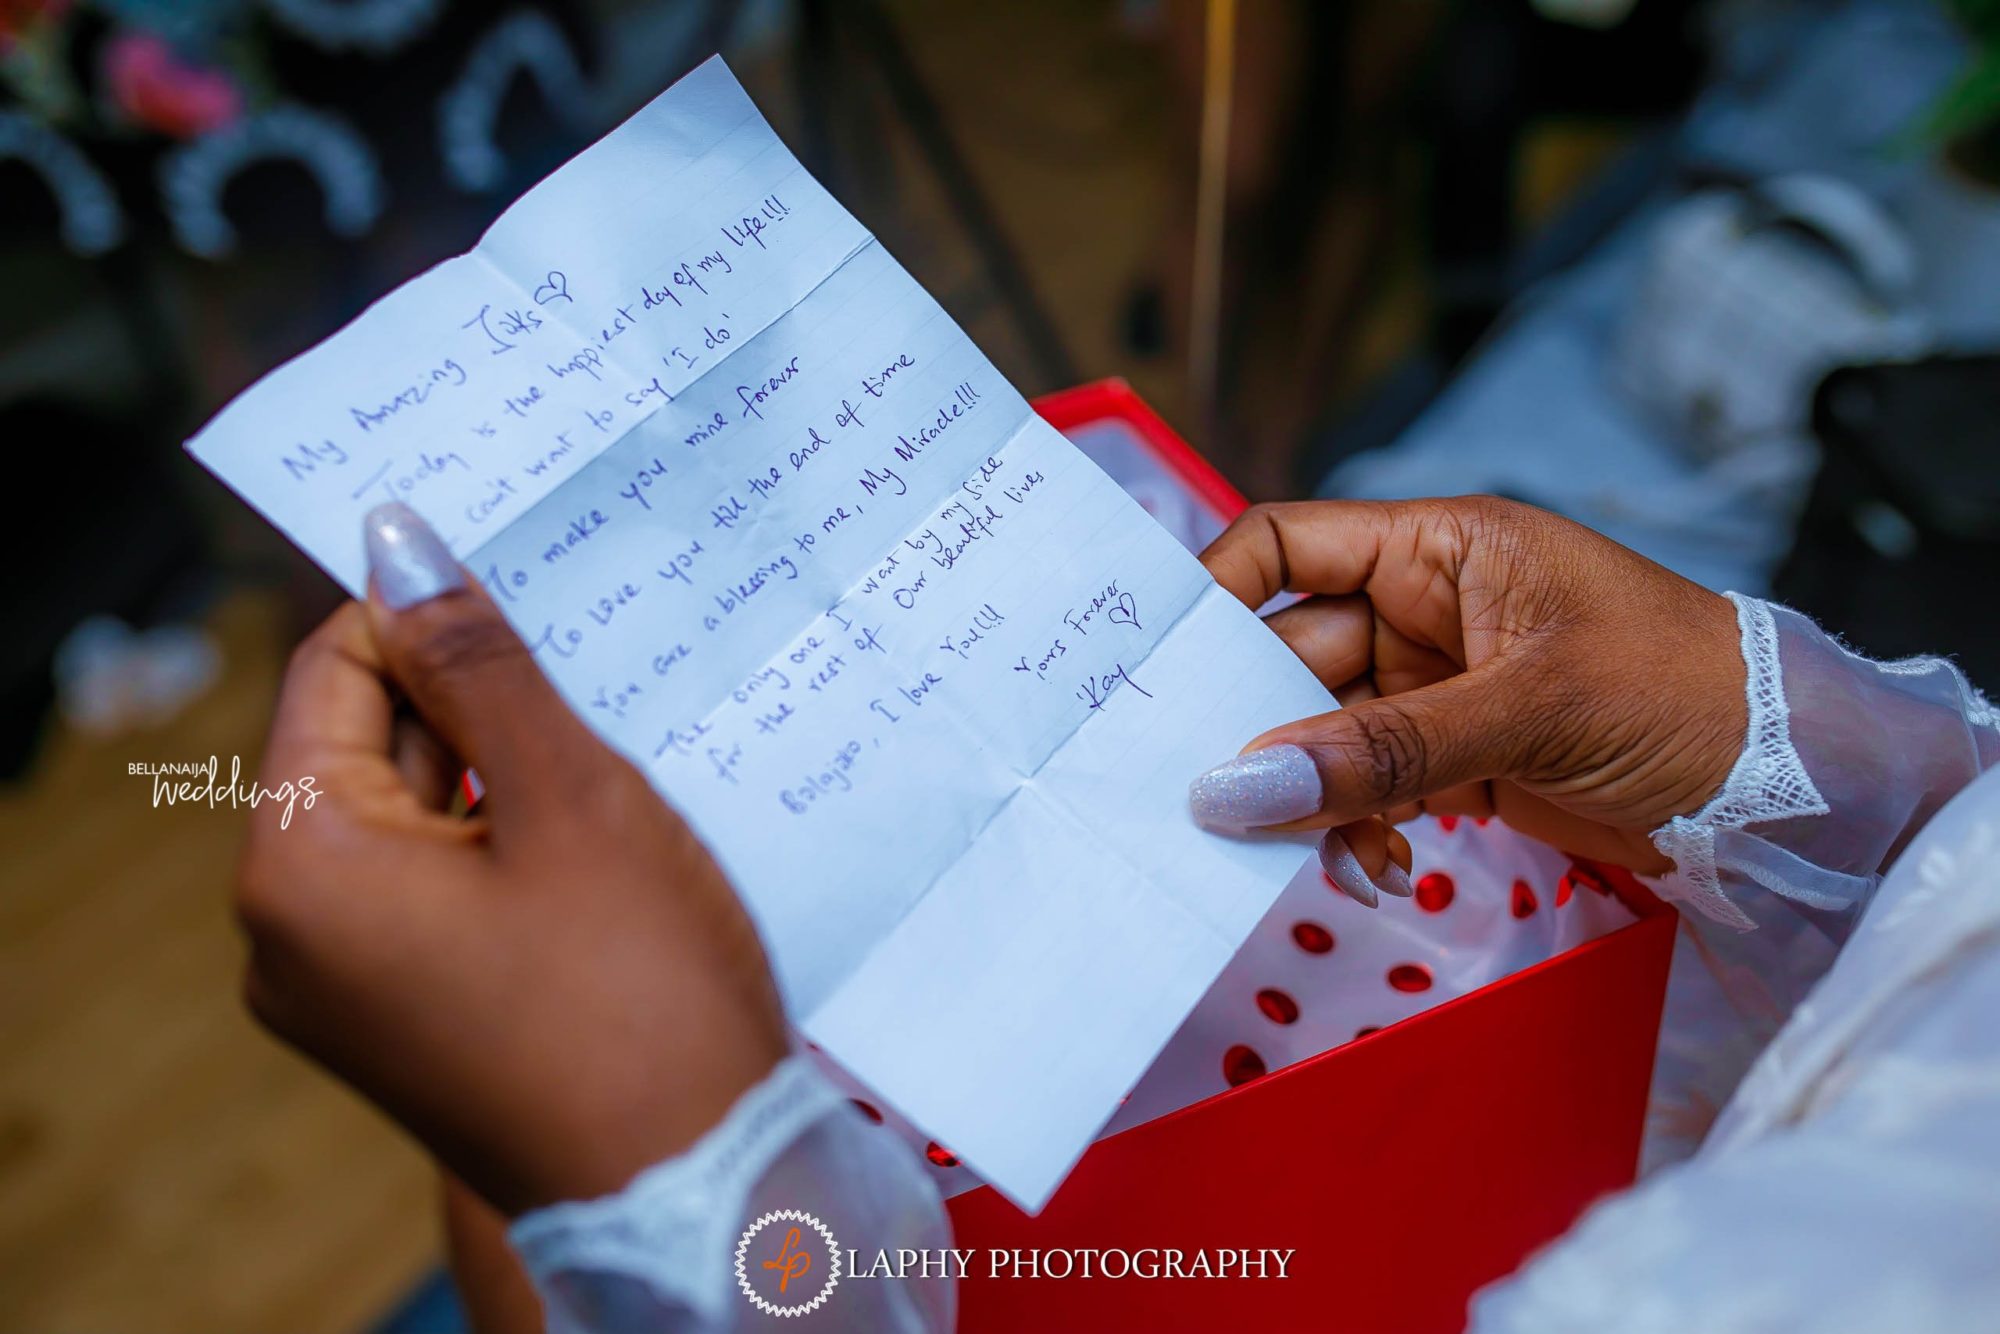 My Amazing Joks
Today is the happiest day of my life!!!
Can't wait to say 'I do'
To make you mine forever
To love you till the end of time
You are a blessing to me, My Miracle!!!
The only one I want by my side
for the rest of Our beautiful lives
Bolajoko, I love you!!!
Yours Forever
'Kay
BELLANAIJA
weddings
LP LAPHY PHOTOGRAPHY